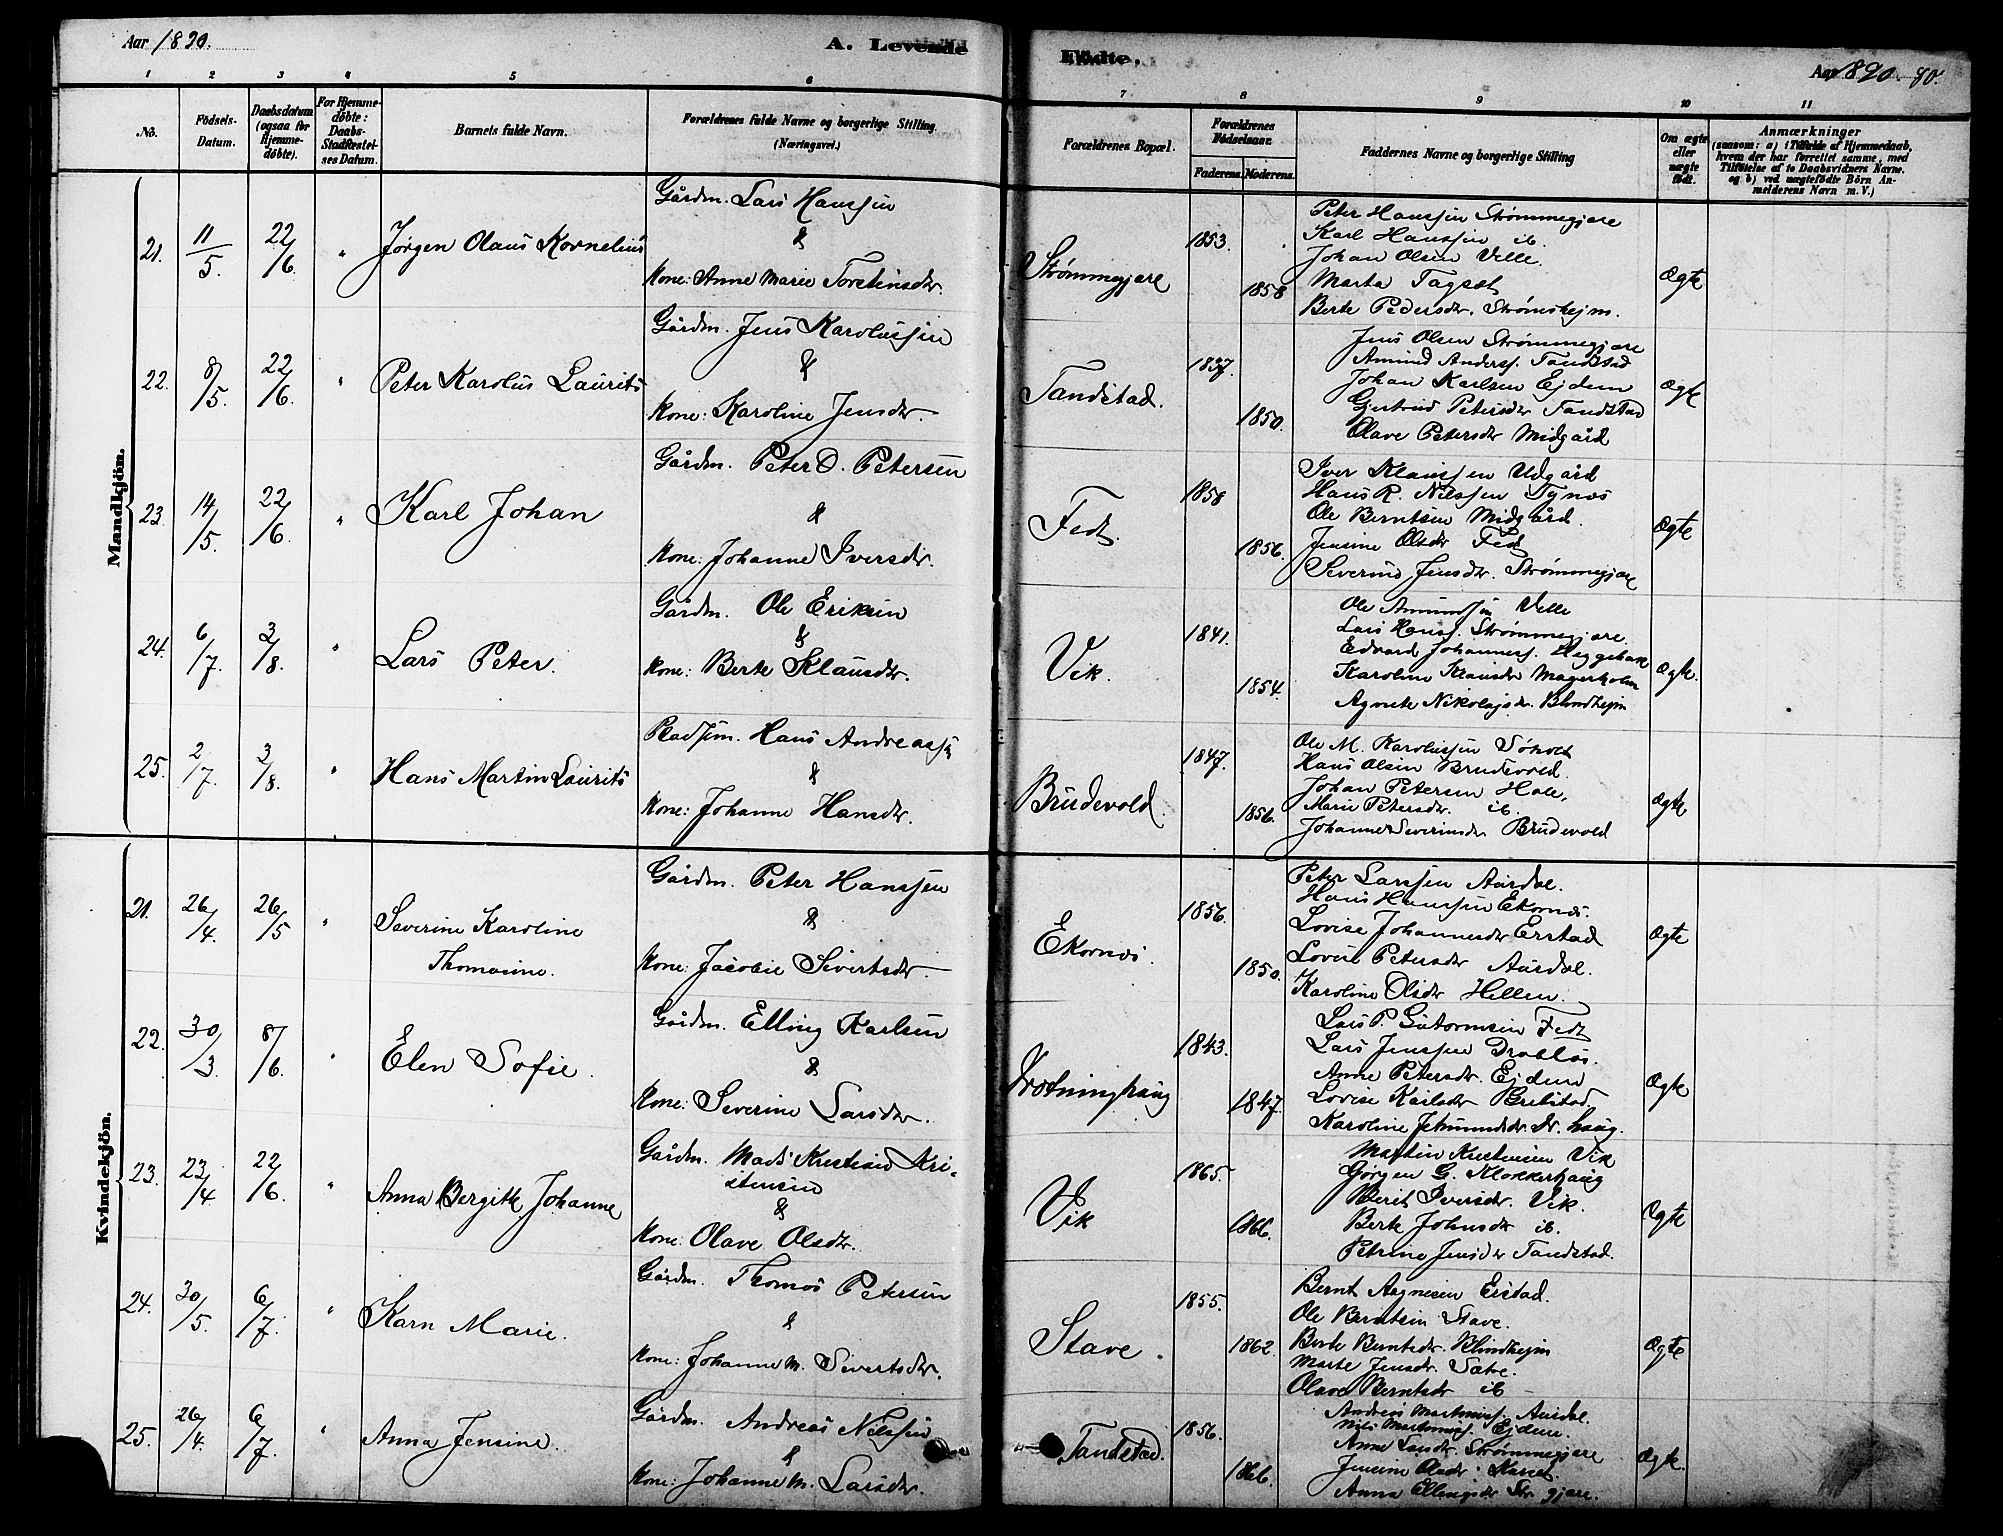 Aar 1890.
A. Levende
Fødte.
Aar 1890. 90.
1 2 3 4 5 6
7 8 9 10 11
No.
Födsels-
Datum.
Daabsdatum
(ogsaa for
Hjemme-
døbte).
For Hjemme-
døbte:
Daabs-
Stadfæstel-
ses Datum.
Barnets fulde Navn.
Forældrenes fulde Navne og borgerlige Stilling.
(Næringsvei.)
Forældrenes Bopæl.
Forældrenes
Fødselsaar.
Faderens. Moderens.
Faddernes Navne og borgerlige Stilling
Om ægte
eller
uægte
født.
Anmærkninger
(saasom: a) i Tilfælde af Hjemmedaab,
hvem der har forrettet samme, med
Tilføielse af to Daabsvidners Navne.
og b) ved uægtefødte Börn An-
melderens Navn m. V.)
Mandkjön.
21. 11/5. 22/6. " Jørgen Olaus Kornelius
Gårdm. Lars Hanssen
&
Kone: Anne Marie Torstensdtr.
Strømmegjære 1853. 1858
Peter Hanssen Strømmegjære
Karl Hanssen ib.
Johan Olsen Velle.
Marta Tagset
Berte Pedersdtr. Strømshejm.
Ægte
22. 8/5. 22/6. " Peter Karolus Laurits
Gårdm. Jens Karolussen
&
Kone: Karoline Jensdtr.
Tandstad. 1837. 1850.
Jens Olsen Strømmegjære
Amund Anderss. Tandstad
Johan Karlsen Ejdem
Gjertrud Petersdtr Tandstad
Olave Petersdtr Midgård
Ægte
23. 14/5. 22/6. " Karl Johan
Gårdm. Peter O. Petersen
&
Kone: Johanne Iversdtr.
Fedt. 1858 1856.
Iver Klaussen Udgård
Hans R. Nilssen Tynes
Ole Berntsen Midgård.
Jensine Olsdtr Fedt
Severine Jensdtr. Strømmegjære
Ægte
24. 6/7. 3/8. " Lars Peter.
Gårdm. Ole Eriksen
&
Kone: Berte Klausdtr.
Vik. 1841. 1854.
Ole Amundsen Velle
Lars Hanss. Strømmegjære
Edvard Johanness. Heggebak
Karoline Klausdtr Magerholm
Agnete Nikolajsdr. Blindhejm
Ægte.
25. 2/7. 3/8. " Hans Martin Laurits
Pladsm. Hans Andreassen
&
Kone: Johanne Hansdtr.
Brudevold. 1847. 1856.
Ole M. Karolussen
Hans Olsen Brudevold.
Johan Petersen Hole,
Marie Petersdtr. ib
Johanne Severinsdtr Brudevold
Ægte
Kvindekjön.
21. 26/4. 26/5 " Severine Karoline
Thomasine.
Gårdm. Peter Hanssen
&
Kone: Jacobie Sivertsdtr.
Ekornes. 1856. 1850.
Peter Larssen Aursdal.
Hans Hanssen Ekornes.
Lovise Johannesdtr Erstad
Lovise Petersdtr Aursdal.
Karoline Olsdtr Hellen.
Ægte
22. 30/3. 8/6. " Elen Sofie.
Gårdm. Elling Karlsen
&
Kone: Severine Larsdtr.
Drotninghaug 1843. 1847.
Lars P. Gutormsen Fedt
Lars Jenssen Drabløs.
Anne Petersdtr. Ejdem
Lovise Karlsdtr
Karoline Jetmundsdr. Dr. haug.
Ægte
23. 23/4. 22/6. " Anna Bergitte Johanne
Gårdm. Mads Kristian Kri-
stensen
&
Kone: Olave Olsdtr.
Vik 1865. 1866.
Martin Kristensen Vik
Jørgen G. Klokkerhaug
Berit Iversdr. Vik.
Berte Johnsdtr ib.
Petrine Jensdtr Tandstad.
Ægte
24. 30/5. 6/7. " Karn Marie.
Gårdm. Thomas Petersen
&
Kone: Johanne M. Sivertsdtr.
Stave. 1855. 1862.
Bernt Aagesen Erstad.
Ole Berntsen Stave.
Berte Berntsdtr. Blindhejm
Marte Jensdtr. Sætre.
Olave Berntsdtr ib
Ægte
25. 26/4. 6/7 " Anna Jensine.
Gårdm. Andreas Nilssen
&
Kone: Johanne M. Larsdtr.
Tandstad. 1856. 1866.
Andreas Martinuss. Aursdal.
Nils Martinuss. Ejdem.
Anne Larsdtr. Strømmegjære
Jensine Olsdtr.
Anna Ellingsdtr Str. gjære.
Ægte.